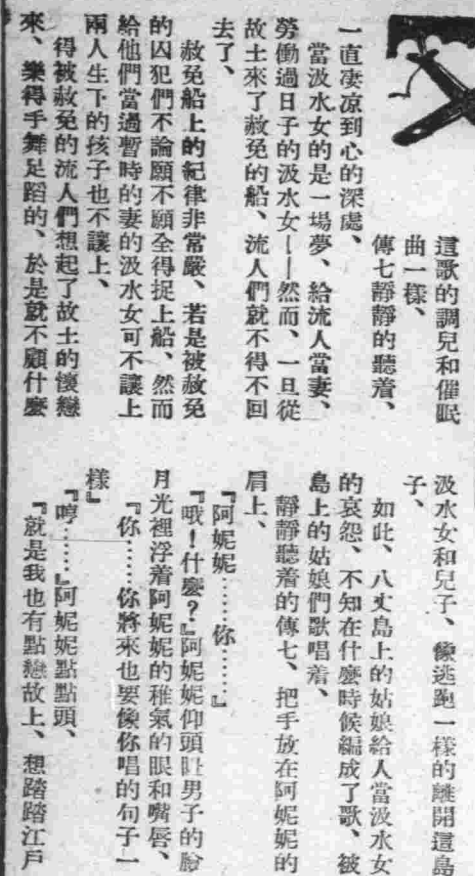 這歌的調兒和催眠
曲一樣、
傳七靜靜的聽着、
一直凄凉到心的深處、
當汲水女的是一場夢、給流人當妻、
勞働過日子的汲水女——然而、一旦從
故土來了赦免的船、流人們就不得不回
去了、
赦免船上的紀律非常嚴、若是被赦免
的囚犯們不論願不願全得捉上船、然而
給他們當過暫時的妻的汲水女可不讓上
兩人生下的孩子也不讓上、
得被赦免的流人們想起了故土的懷戀
來、樂得手舞足蹈的、於是就不顧什麼
汲水女和兒子、像逃跑一樣的離開這島
子、
如此、八丈島上的姑娘給人當汲水女
的哀怨、不知在什麼時候編成了歌、被
島上的姑娘們歌唱着、
靜靜聽着的傳七、把手放在阿妮妮的
肩上、
『阿妮妮……你……』
『哦！什麼？』阿妮妮仰頭瞅男子的臉
月光裡浮着阿妮妮的稚氣的眼和嘴唇、
『你……你將來也要像你唱的句子一
樣』
『哼……』阿妮妮點點頭、
『就是我也有點戀故土、想踏踏江戶